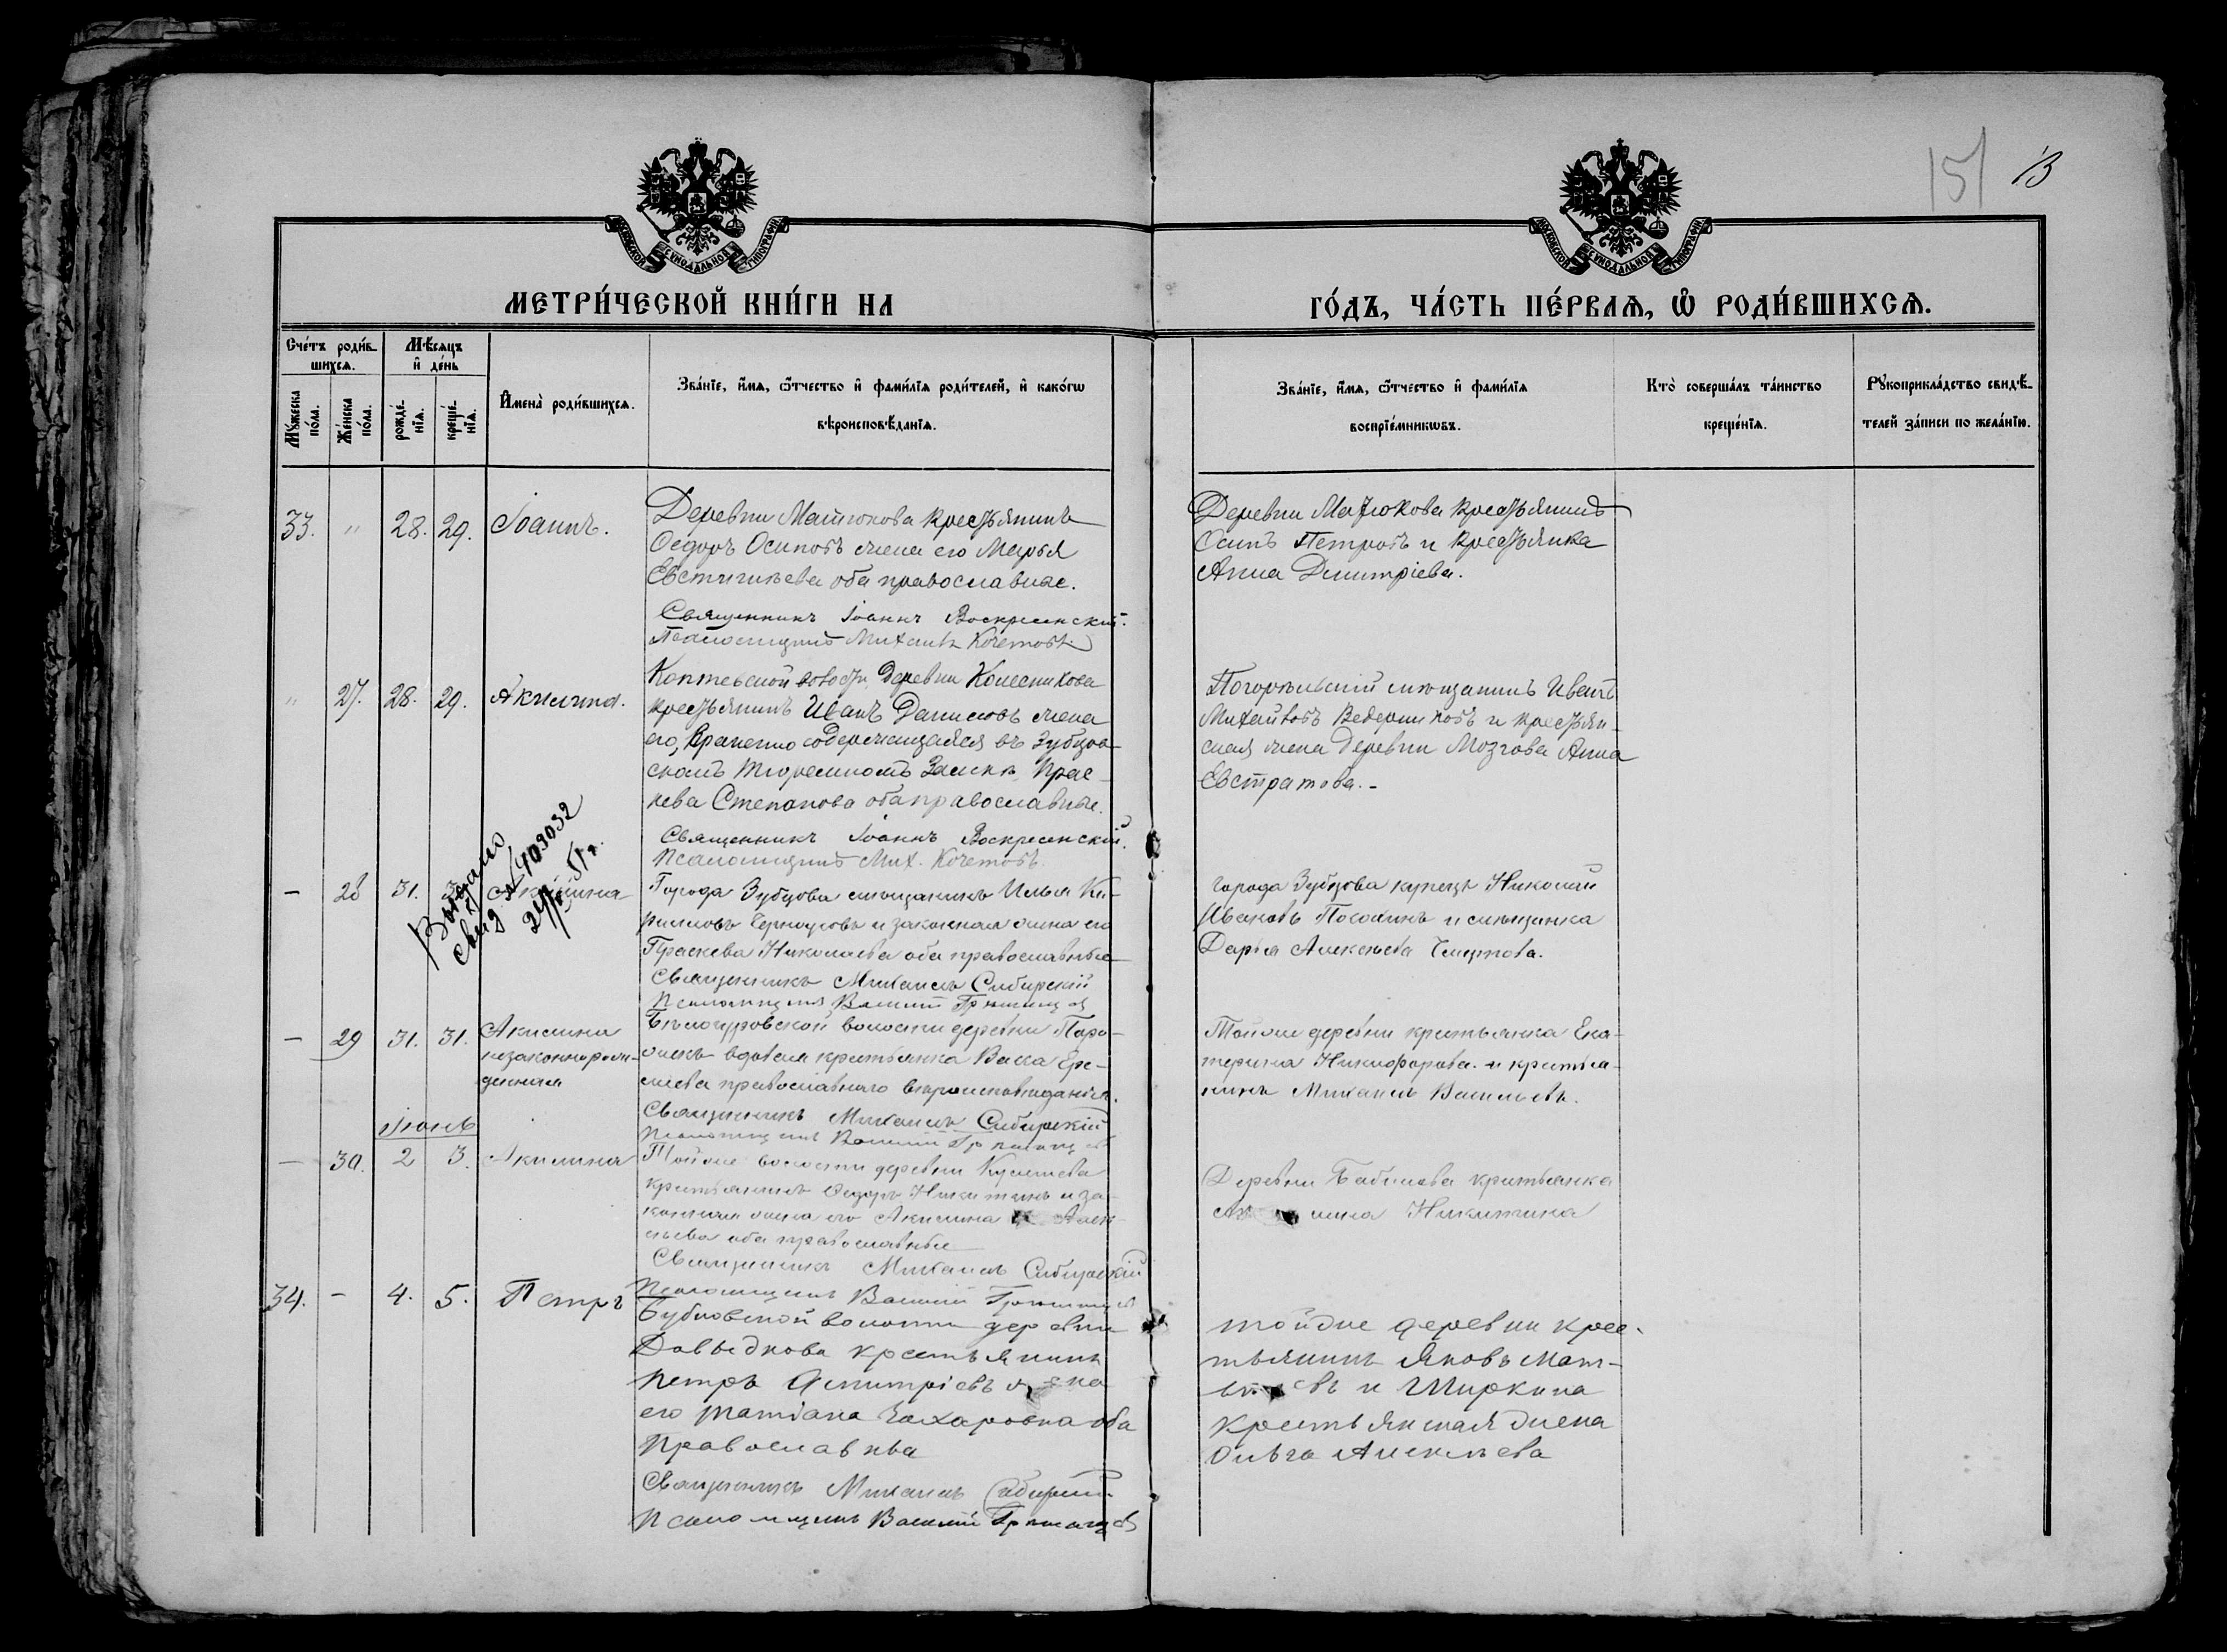 151 13
МОСКОВСКОЙ СѴНОДАЛЬНОЙ ТИПОГРАФІИ
МОСКОВСКОЙ СѴНОДАЛЬНОЙ ТИПОГРАФІИ
МЕТРИ́ЧЕСКОЙ КНИ́ГИ НА
ГО́ДЪ, ЧА́СТЬ ПЕ́РВАѦ, Ѡ҆ РОДИ́ВШИХСѦ.
Сче́тъ роди́в-
шихсѧ.
Мѣ́сѧцъ
и҆ де́нь
Мꙋ́жеска
по́ла.
Же́нска
по́ла.
рожде́-
нїѧ.
креще́-
нїѧ.
И҆мена̀ роди́вшихсѧ.
Зва́нїе, и҆́мѧ, ѻ҆́тчество и҆ фами́лїѧ роди́телей, и҆ како́гѡ
вѣроисповѣ́данїѧ.
Зва́нїе, и҆́мѧ, ѻ҆́тчество и҆ фами́лїѧ
воспрїе́мникѡвъ.
Кто̀ соверша́лъ та́инство
креще́нїѧ.
Рꙋкоприкла́дство свидѣ́-
телей за́писи по жела́нїю.
33. " 28. 29. Іоаннъ.
Деревни Матюкова крестьянинъ
Ѳедоръ Осиповъ жена его Марья
Евстигнѣева оба православные.
Священникъ Іоаннъ Воскресенскій.
Псаломщикъ Михаилъ Кочетовъ.
Деревни Матюкова крестьянинъ
Осипъ Петровъ и крестьянка
Анна Димитріева.
" 27. 28. 29. Акилина.
Коптевской волости, Деревни Колесникова
крестьянинъ Иванъ Даниловъ жена
его, временно содержащаяся въ Зубцов-
скомъ тюремномъ замкѣ, Прас-
кева Степанова оба православные.
Священникъ Іоаннъ Воскресенскій.
Псаломщикъ Мих. Кочетовъ.
Погорѣльскій мѣщанинъ Иванъ
Михайловъ Ведерниковъ и крестьян-
ская жена Деревни Мозгова Анна
Евстратова.-
Выдано
свид. № 409032
51 г.
- 28 31. Акилина
Города Зубцова мѣщанинъ Илья Ки-
рилловъ и законная жена его
Праскева Николаева оба православные
Священникъ Михаилъ Сибирскій
Псаломщикъ Василий
города Зубцова купецъ Николай
Ивановъ и мѣщанка
Дарья Алексѣева
- 29 31. 31. Акилина
незаконнорож-
денная
волости деревни
вдовая крестьянка Васса Ере-
меева православнаго вѣроисповѣданія.
Священникъ Михаилъ Сибирскій
Псаломщикъ Василій
Тойже деревни крестьянка Ека-
терина Никифорова и крестья-
нинъ Михаилъ Васильевъ.
Іюнь
- 30. 2 3. Акилина
Тойже волости деревни
крестьянинъ Ѳедоръ Никитинъ и за-
конная жена его Акилина Алек-
сѣева оба православные
Священникъ Михаилъ Сибирскій
Псаломщикъ Василій
Деревни крестьянка
Никитина
34. - 4. 5. Петръ
Бубновской волости деревни
Давыдкова крестьянинъ
Петръ Димитріевъ жена
его Татіана Захаровна оба
православные
Священникъ Михаилъ Сибирскій
Псаломщикъ Василій
тойже деревни крес-
тьянинъ Яковъ Мат-
вѣевъ и Ширкина
крестьянская жена
Ольга Алексѣева